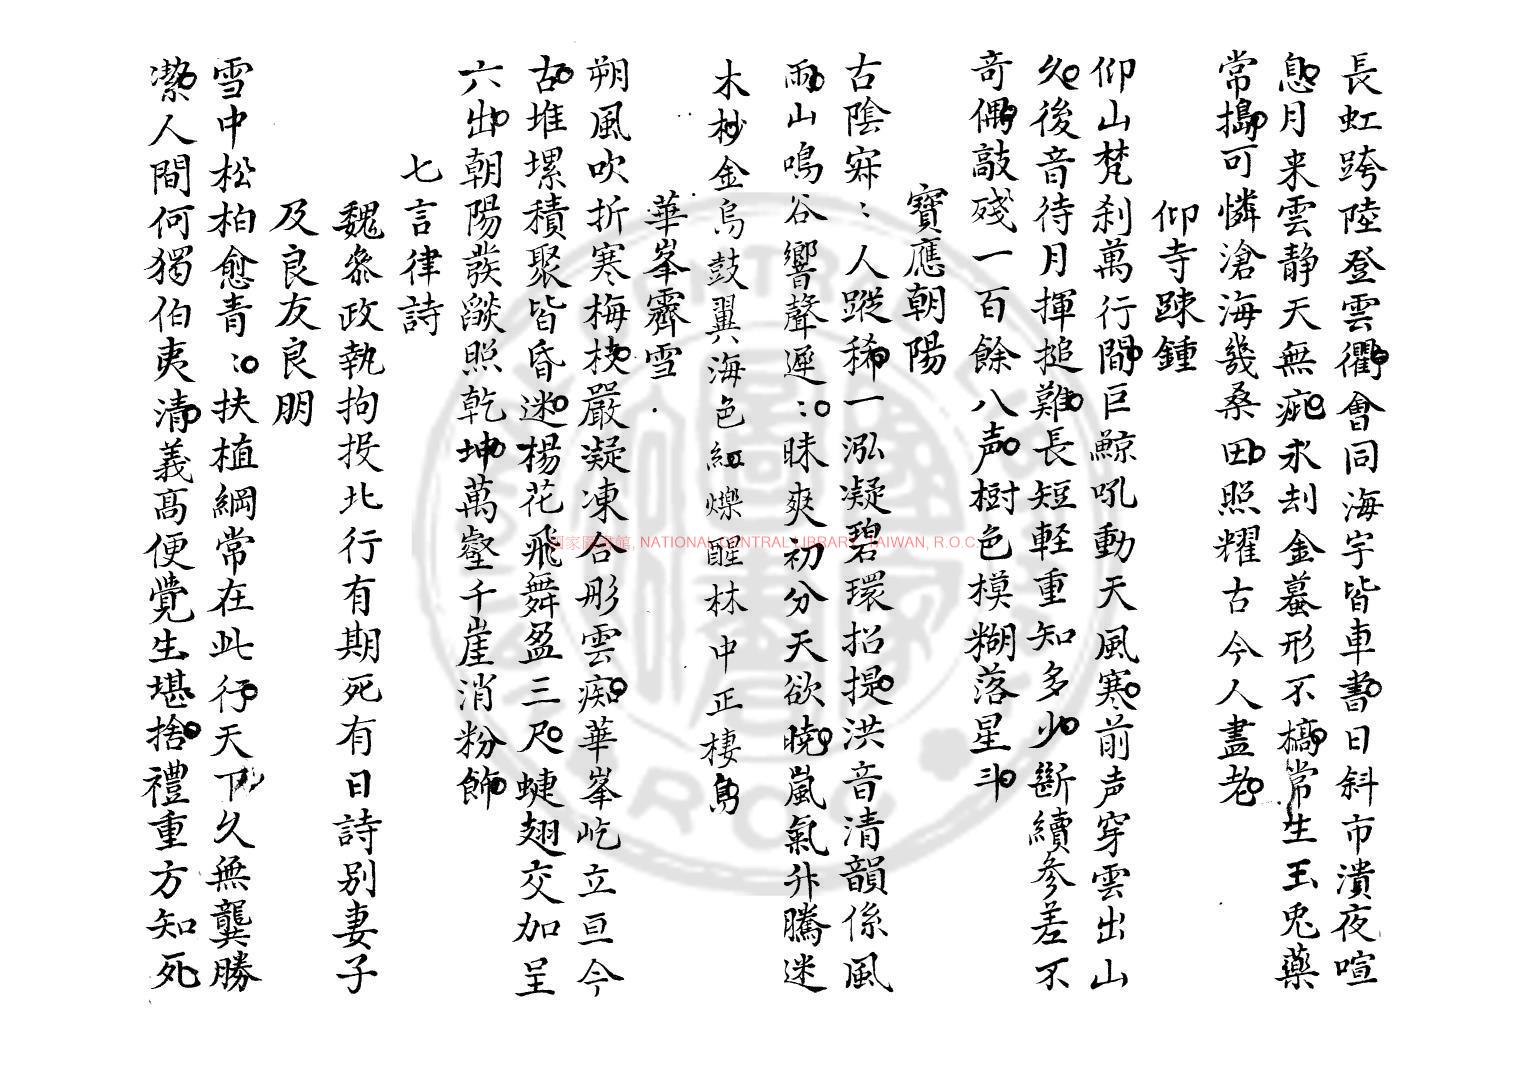 長虹跨陸登雲衢會同海宇皆車書日斜市潰夜喧
息月来雲静天無疵永刦金蟇形不槁常生玉兎藥
常搗可憐滄海幾桑田照耀古今人盡老
仰寺踈鍾
仰山梵刹萬行間巨鯨吼動天風寒前声穿雲出山
久後音待月揮搥難長短軽重知多少斷續參差不
竒偶敲殘一百餘八声樹色模糊落星斗
寶應朝陽
古陰寀：人蹤稀一泓凝碧環招提洪音清韻係風
雨山鳴谷響聲遲：昧爽初分天欲曉嵐氣升騰迷
木杪金烏鼓翼海色紅爍醒林中正棲鳥
華峯霽雪
朔風吹折寒梅枝嚴凝凍合彤雲痴華峯屹立亘今
古堆堁積聚皆昏迷楊花飛舞盈三尺蜨翅交加呈
六出朝陽蕟燄照乾坤萬壑千崖消粉飾
七言律詩
魏叅政執拘投北行有期死有日詩别妻子
及良友良朋
雪中松柏愈青：扶植綱常在此行天下久無龔勝
潔人間何獨伯夷清義髙便覺生堪捨禮重方知死
國家圖書館, NATIONAL CENTRAL LIBRARY, TAIWAN, R.O.C.